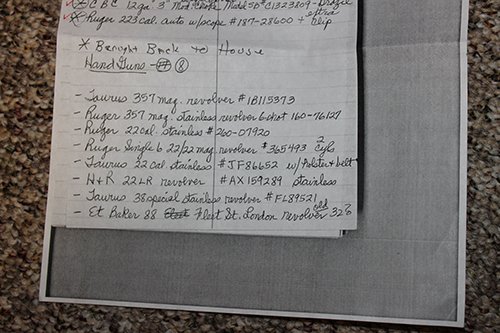 * CBC 12ga 3" Mod Choke Model SB #C1323809 - Brazil
* Ruger 223 cal. auto w/scope #187-28600 + extra clip
* Brought Back to House
Hand Guns - 8
- Taurus 357 mag. revolver #1B115373
- Ruger 357 mag. stainless revolver 6 shot 160-76127
- Ruger 22 cal. stainless #260-07920
- Ruger Single 6 22/22 mag. revolver #365493 2 cyls
- Taurus 22 cal. stainless #JF86652 w/holster & belt
- H+R 22LR revolver #AX159289 stainless
- Taurus 38 special stainless revolver #FL89521
- Et Baker 88 Fleet St. London revolver old 32